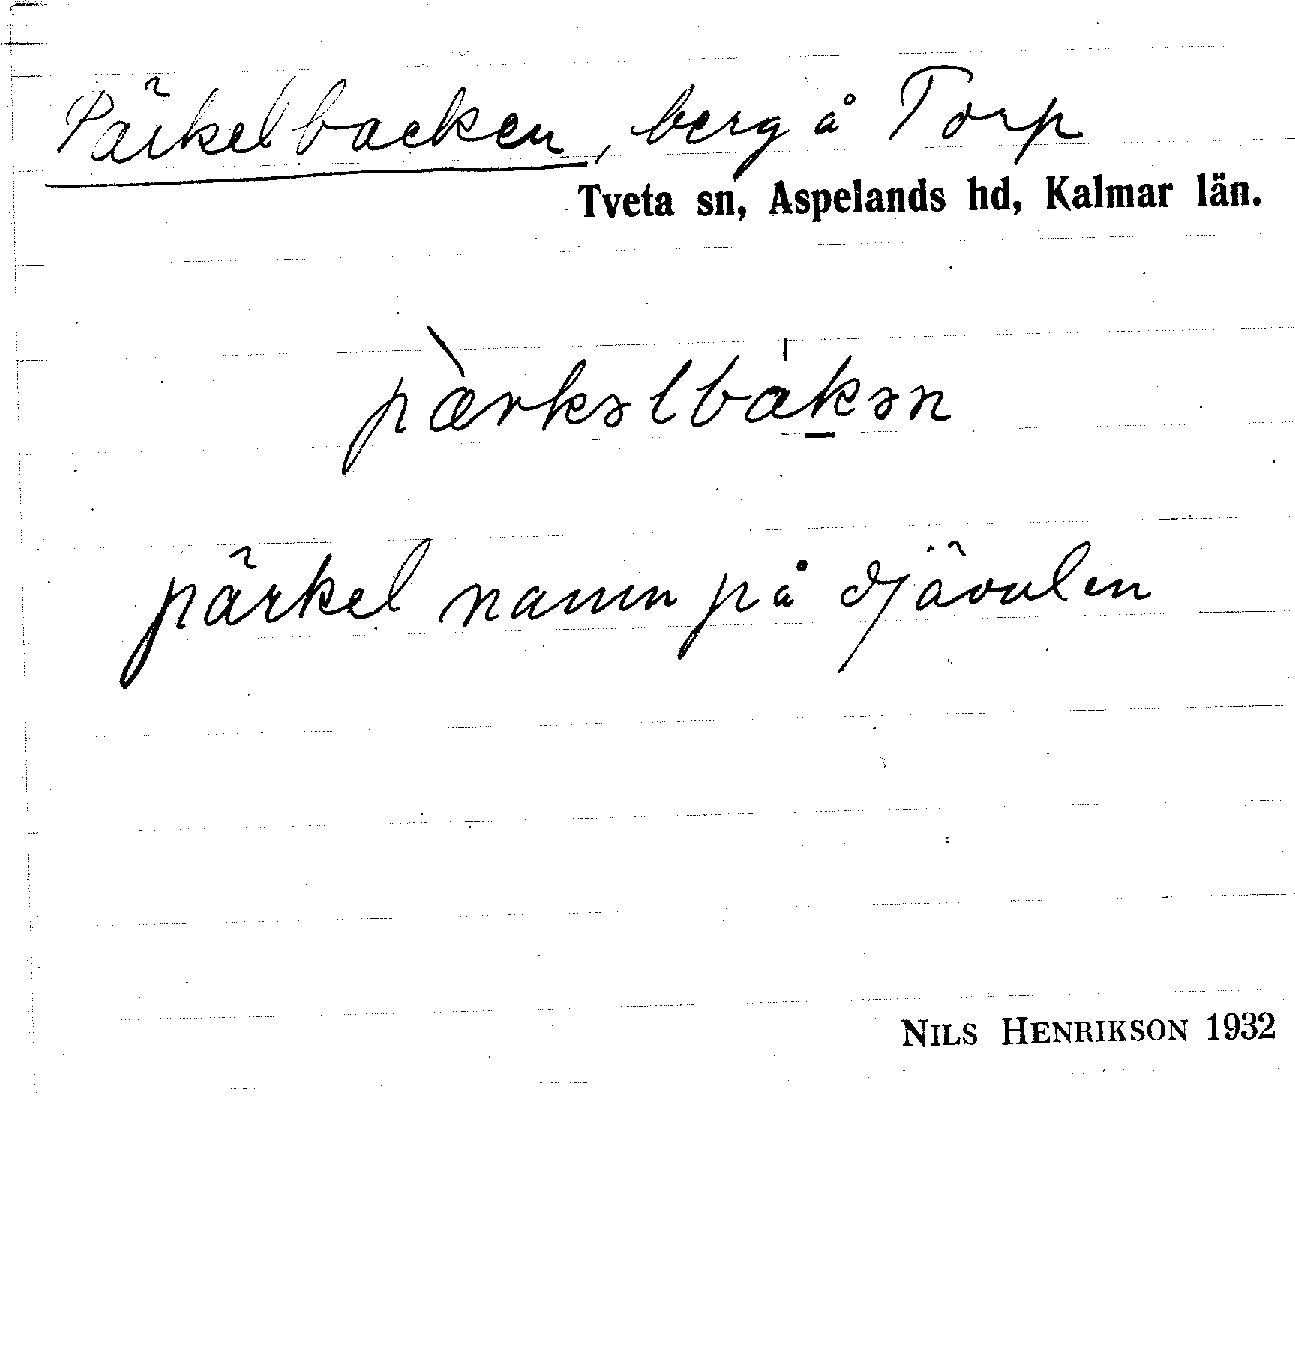 Pärkelbacken, berg å Torp
Tveta sn, Aspelands hd, Kalmar län.
pæ̀rkəlbakən
pärkel namn på djävulen
NILS HENRIKSON 1932